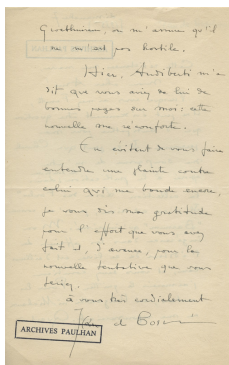 on m'assure qu'il
ne m'est pas hostile.
Hier, Audiberti m'a
dit que vous aviez de lui de
bonnes pages sur moi : cette
nouvelle me réconforte.
En évitant de vous faire
entendre une plainte contre
celui qui me boude encore,
je vous dis ma gratitude
pour l'effort que vous avez
fait et, d'avance, pour la
nouvelle tentative que vous
ferez.
à vous très cordialement
Jean de Boschère
ARCHIVES PAULHAN